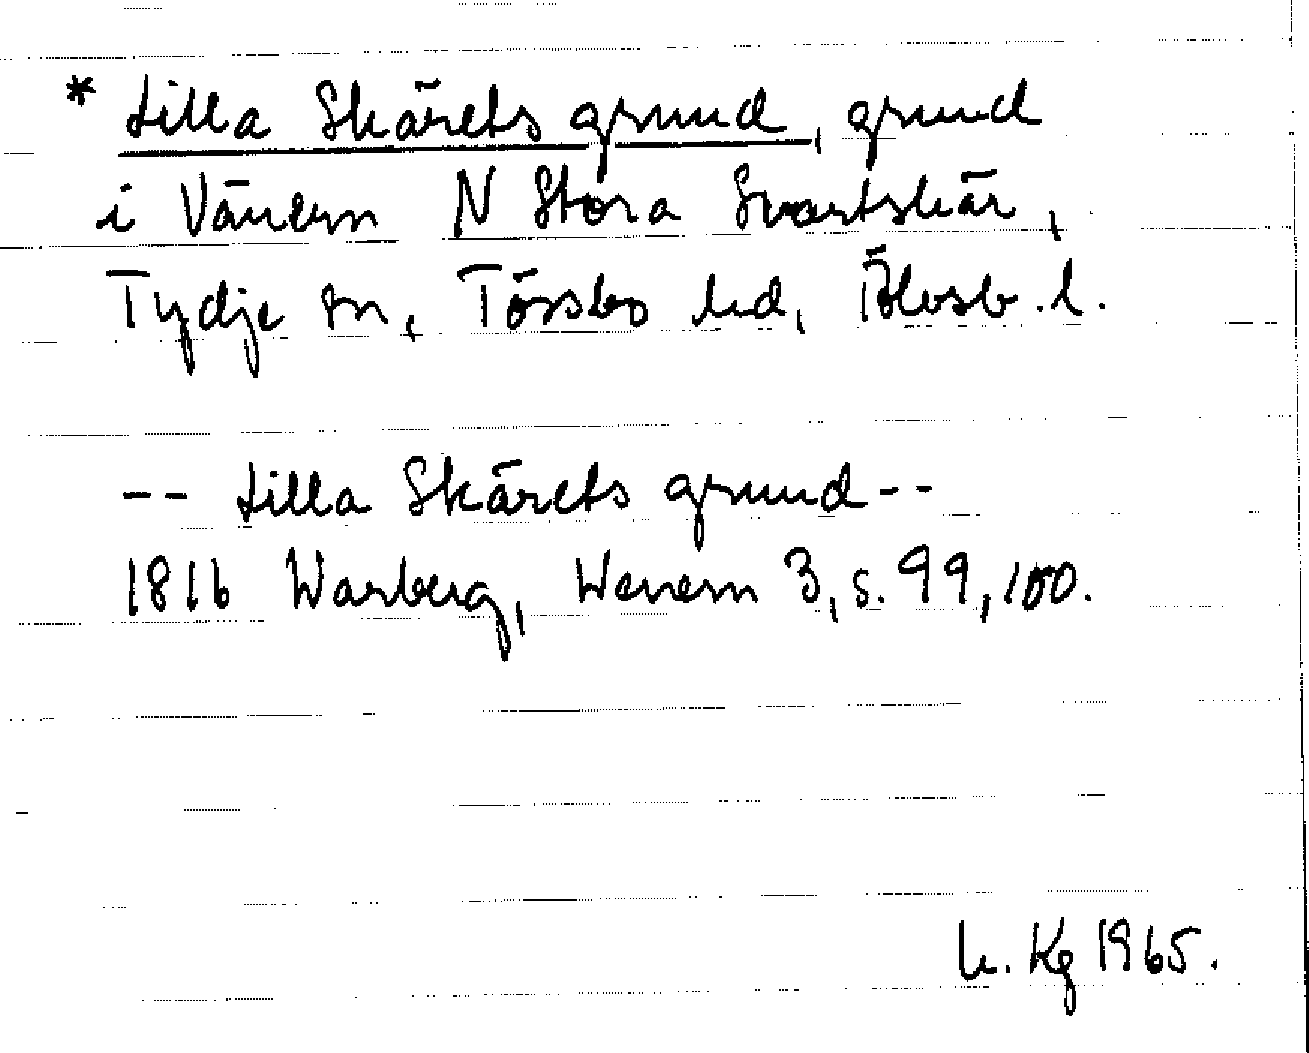 * Lilla Skärets grund, grund
i Vänern N Stora Svartskär,
Tydje sn, Tössbo hd, Älvsb. l.
-- Lilla Skärets grund --
1816 Warberg, Wenern 3, s. 99, 100.
Kg 1965.